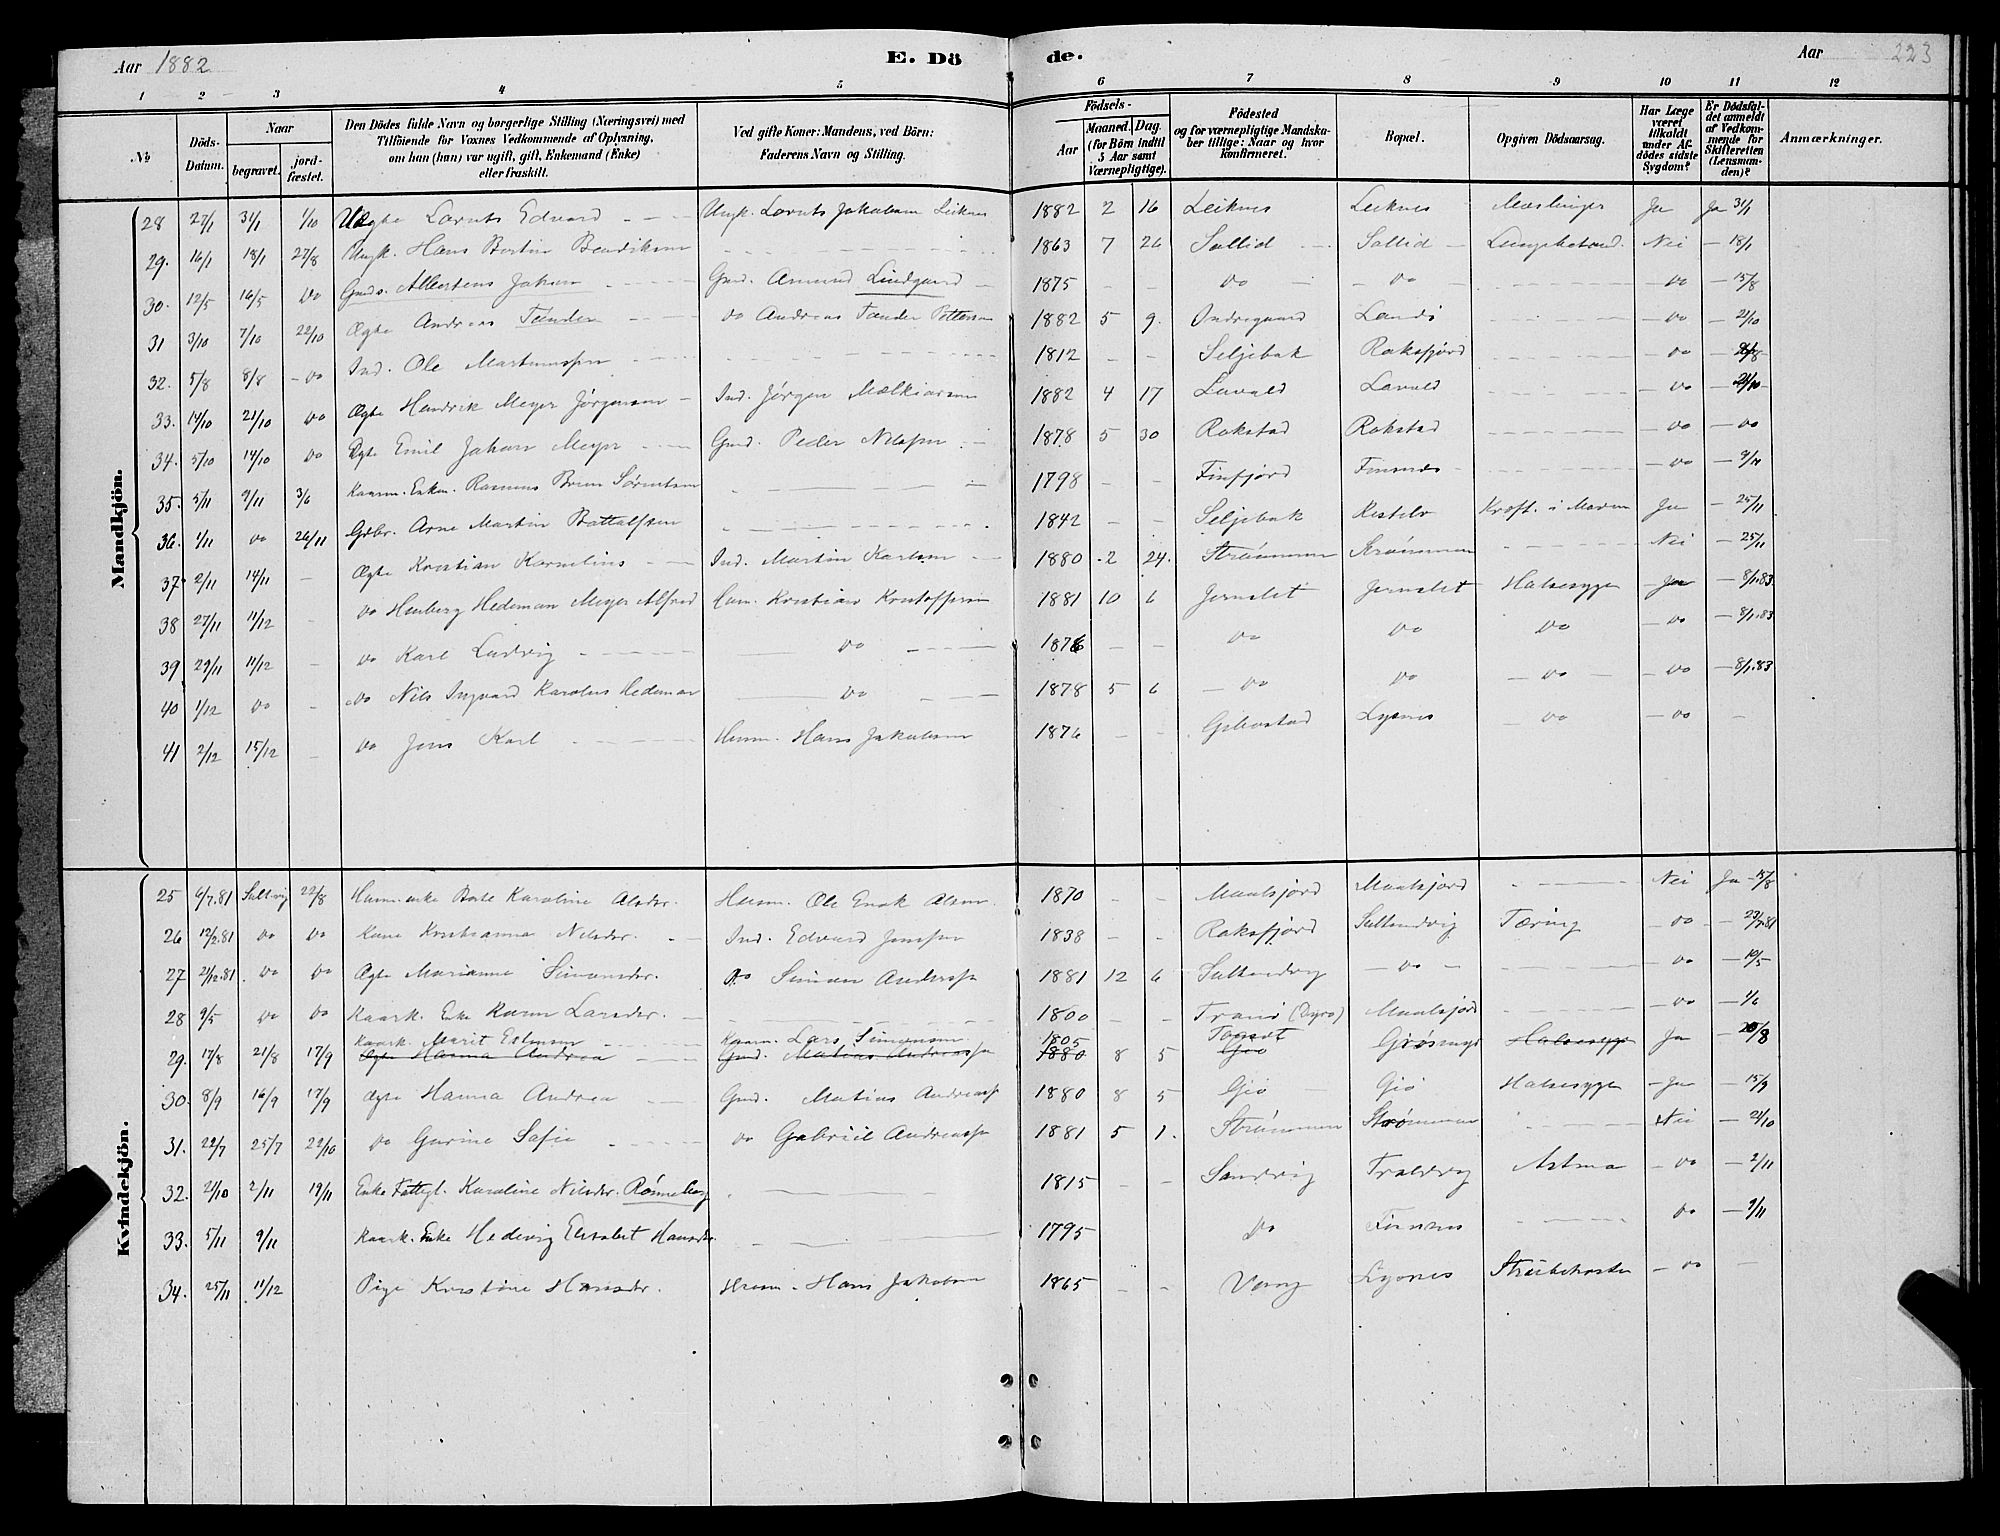 Aar 1882 E. Dö de. Aar 223
1 2 3 4 5 6 7 8 9 10 11 12
No Döds-Datum. Naar begravet. jordfæstet. Den Dödes fulde Navn og borgerlige Stilling (Næringsvei) med Tilföiende for Voxnes Vedkommende af Oplysning, om hun (han) var ugift, gift, Enkemand (Enke) eller fraskilt. Ved gifte Koner: Mandens, ved Börn: Faderens Navn og Stilling. Födsels- Aar Maaned. Dag. (for Börn indtil 5 Aar samt Værnepligtige). Födested og for værnepligtige Mandskaber tillige: Naar og hvor konfirmeret. Bopæl. Opgiven Dödsaarsag. Har Læge været tilkaldt under Afdödes sidste Sygdom? Er Dödsfaldet anmeldt af Vedkommende for Skifteretten (Lensmanden)? Anmærkninger.
Mandkjön.
28 27/1 31/1 1/10 Ægte Lorents Edvard Ungk. Lorents Jakobsen Leiknes 1882 2 16 Leiknes Leiknes Mæslinger Ja Ja 31/1
29. 16/1 18/1 27/8 Ungk. Hans Bertin Bendiksen 1863 7 26 Sallid Sallid Nei 18/1
30. 12/5 16/5 do Gmds. Albertens Johan Gmd. Amund Lindgaard 1875 do do do 15/8
31 3/10 7/10 22/10 Ægte Andreas Tander do Andreas Tander Pettersen 1882 5 9. Indregaard Landö do 21/10
32. 5/8 8/8 do Ind. Ole Martinussen 1812 Seljebak Roksfjord do
33. 14/10 21/10 do Ægte Hendrik Meyer Jørgensen Ind. Jørgen Melkiorsen 1882 4 17 Lavold Lavold do 21/10
34. 5/10 14/10 do Ægte Emil Johan Meyer Gmd. Peder Nilssen 1878 5 30 Rokstad Rokstad do do
35. 5/11 9/11 3/6 Kaarm. Enkem. Rasmus Sørentsen 1798 Finfjord Finnnes do 9/11
36. 1/11 do 26/11 Gdbr. Arne Martin Bottolfsen 1842 Seljebak Kræft i Maven Ja 25/11
37. 2/11 14/11 Ægte Kristian Kornelius Ind. Martin Karlsen 1880 2 24. Strømmen Strømmen Nei 25/11
38 27/11 11/12 do Hedeman Meyer Alfred Husm. Kristian Kristoffersen 1881 10 6 Jernslet Jernslet Halssyge Ja 8/1.83
39 29/11 11/12 do Karl Ludvig do 1876 do do do do 8/1.83
40 1/12 do do Nils Ingvard Karolus Hedeman do 1878 5 6 do do do do 8/1.83
41 2/12 15/12 do Jens Karl Husm. Hans Jakobsen 1876 Gibostad Lysnes do do
Kvindekjön.
25 6/7.81 22/8 Karoline Olsdtr. Husm. Ole Enok Olsen 1870 Maalsjord Maalsjord Nei Ja 15/8
26 12/2.81 do do Kone Kristianna Nilsdtr. Ind. Edvard Jenssen 1838 Roksfjord Sultendvig Tæring do
27 21/12.81 do do Ægte Marianna Simonsdtr. do Simon Anderssen 1881 12 6 Sultendvig do do 10/5
28 9/5 do do Kaark. Enke Karen Larsdtr. 1800 Tranö (Dyrö) Maalsjord do 1/6
29. 17/8 21/8 17/9 Kaark. Marit Estensen Kaarm. Lars Simonsen 1805 Ja
Ægte Hanna Andrea Gmd. Matias Andreassen 1880 8 5 Gjö Halssyge
30. 8/9 16/9 17/9 Ægte Hanna Andrea Gmd. Matias Andreassen 1880 8 5 Gjö Gjö Halssyge Ja 15/9
31. 22/7 25/7 22/10 do Gurine Sofie do Gabriel Andreassen 1881 5 1. Strømmen Strømmen Nei 21/10
32. 21/10 2/11 19/11 Enke Fattigl. Karoline Nilsdtr. Rønneberg 1815 Sandvig Troldvig Astma do 2/11
33. 5/11 9/11 Kaark. Enke Hedevig Elisabet Hansdtr. 1795 do Finnnes do 9/11
34. 25/11 11/12 Pige Kristine Hansdtr. Husm. Hans Jakobsen 1865 Vang Lysnes Strubehoste do